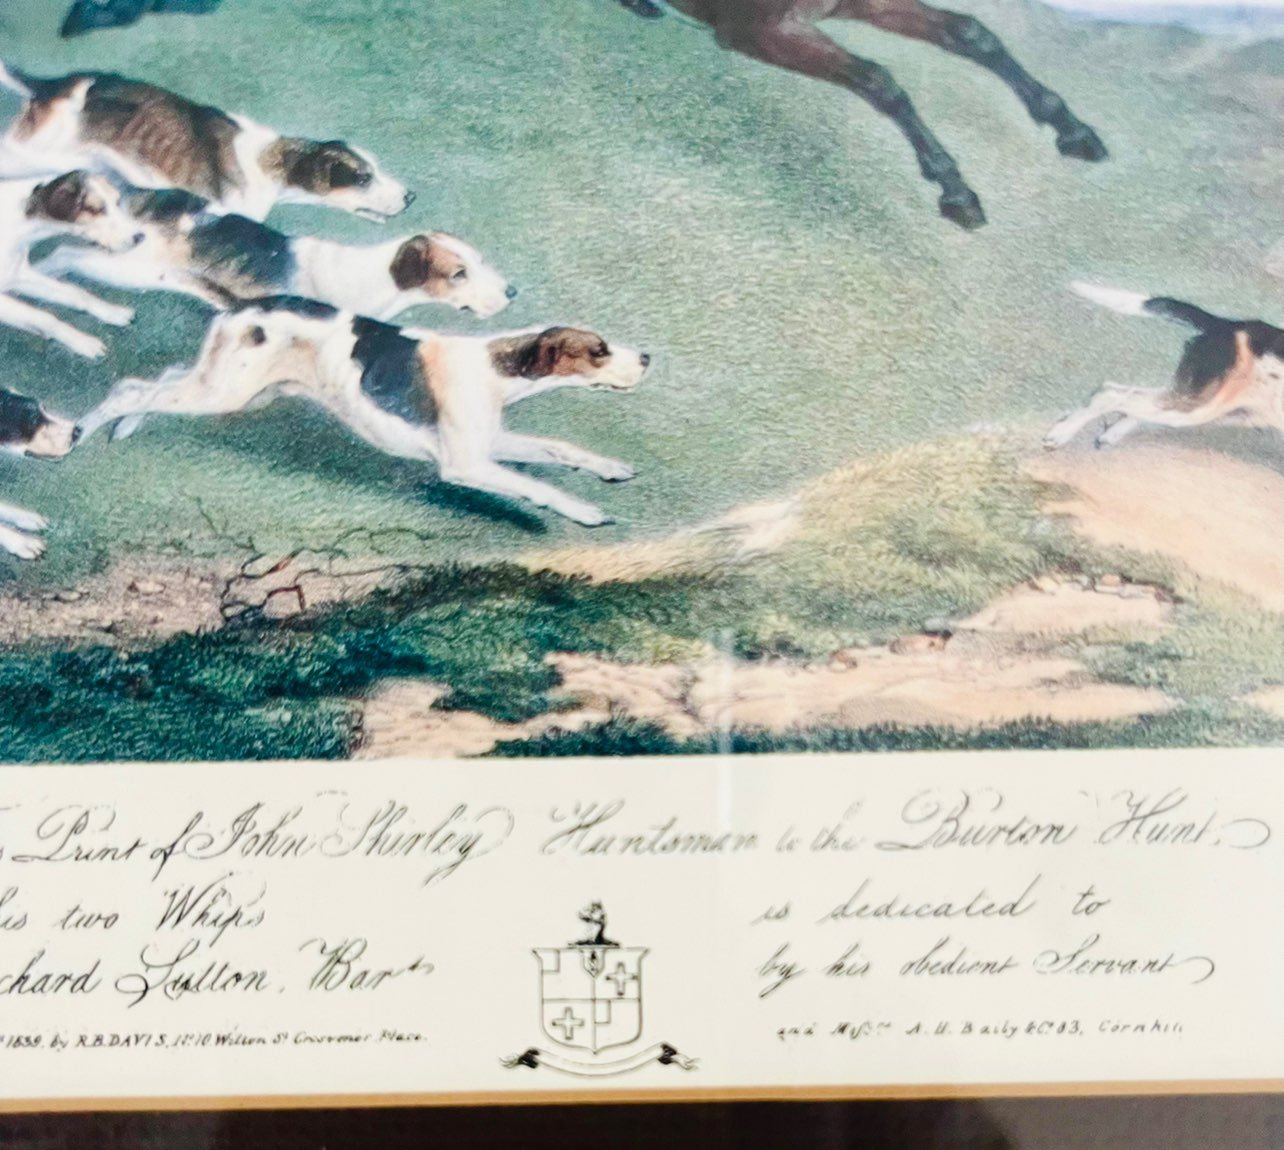 Print of John Shirley Huntsman to the Burton Hunt.
his two Whips is dedicated to
chard Sutton, Bart by his obedient Servant
1839, by R.B.DAVIS, No 10 Wilton St Grosvenor Place. and Messrs A.H. Baily & Co 83, Cornhill